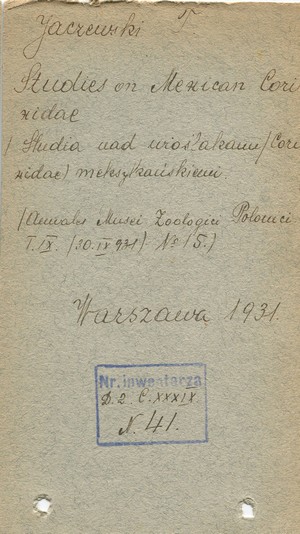 Jaczewski T
Studies on Mexican Cori
xidae
/ Studia nad wioślakami /Cori
xidae/ meksykańskiemi.
/Annales Musei Zoologici Polonici.
T. IX. (20.IX 931) No 15.)
Warszawa 1931.
Nr. inwentarza
D. 2. C. XXXIX
N. 41.